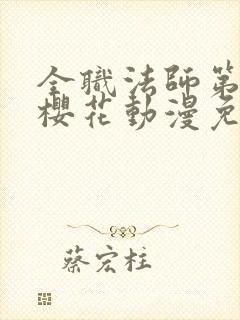 全職法師第
櫻花動漫免
蔡宏柱